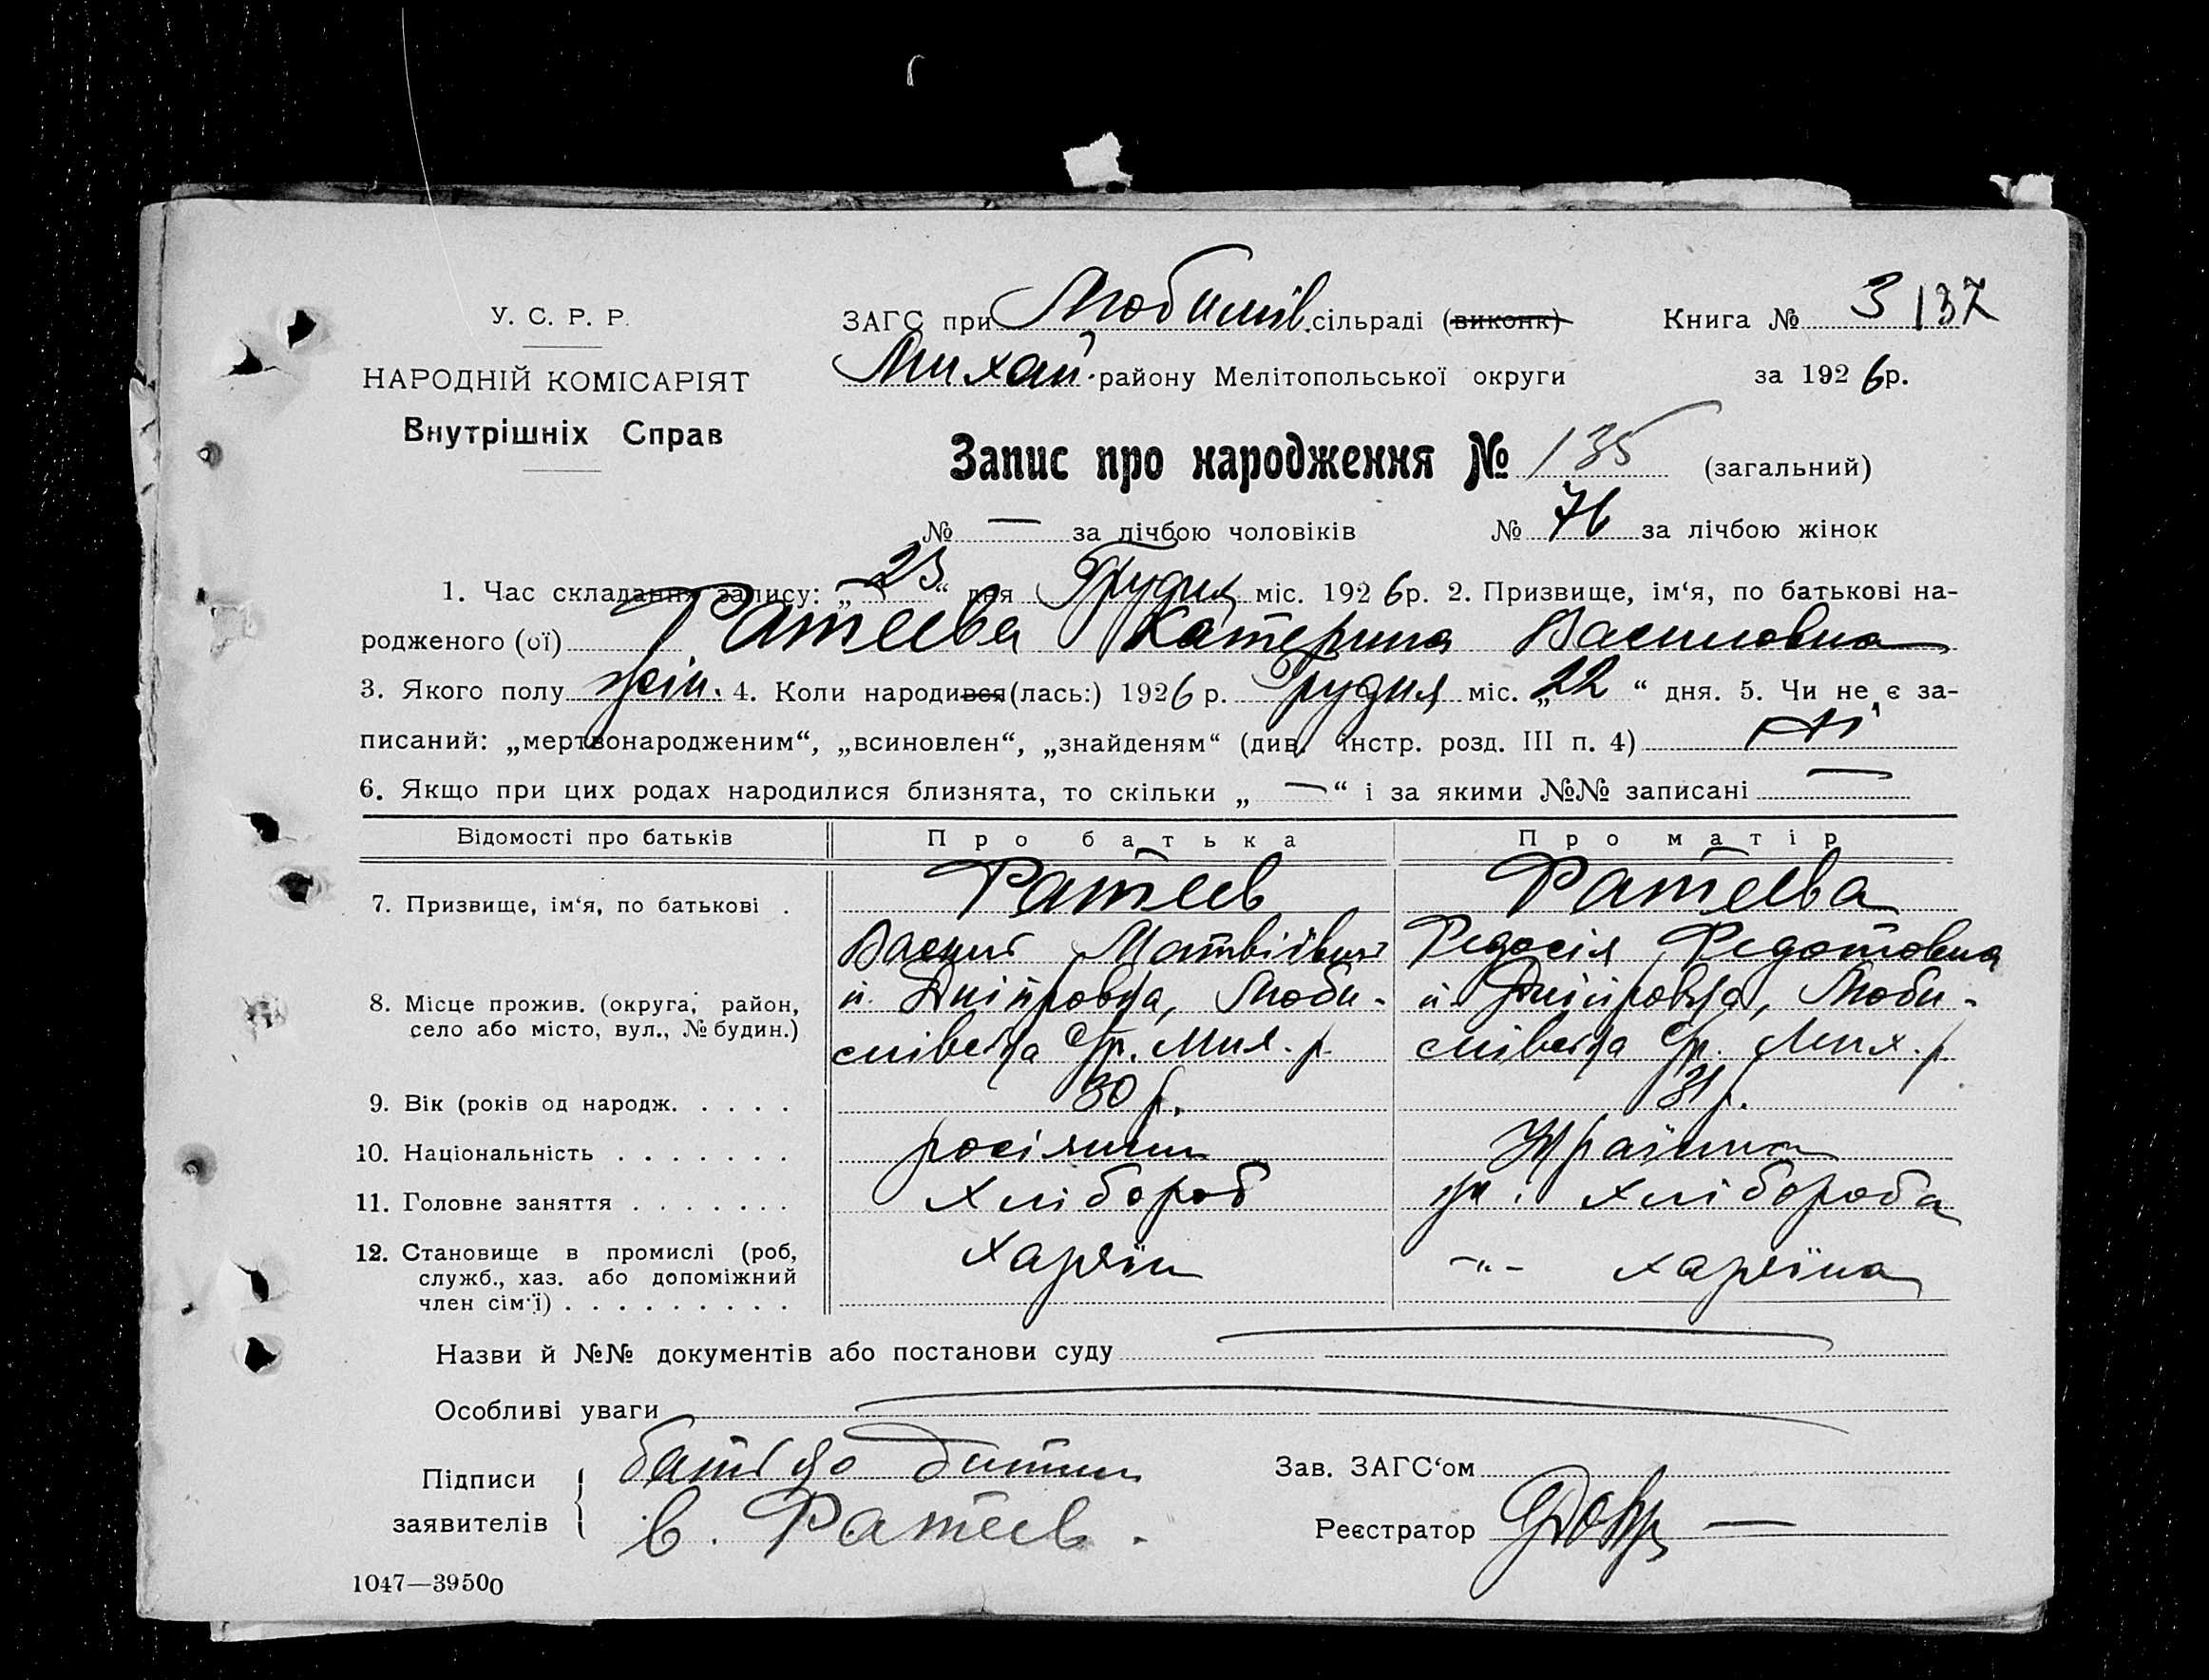 У. С. Р. Р.
НАРОДНІЙ КОМІСАРІЯТ
Внутрішніх Справ
ЗАГС при Любимів. сільраді (виконк)
Михай. району Мелітопольської округи
Книга № 3 137
за 1926 р.
Запис про народження № 135 (загальний)
№ — за лічбою чоловіків № 76 за лічбою жінок
1. Час складання запису: „23“ дня Грудня міс. 1926 р. 2. Призвище, ім‘я, по батькові на-
родженого (ої) Ратеева Катерина Василовна
3. Якого полу жін. 4. Коли народився (лась:) 1926 р. Грудня міс. „22“ дня. 5. Чи не є за-
писаний: „мертвонародженим“, „всиновлен“, „знайденям“ (див. інстр. розд. III п. 4) Ні
6. Якщо при цих родах народилися близнята, то скільки „—“ і за якими №№ записані —
Відомості про батьків Про батька Про матір
7. Призвище, ім‘я, по батькові . Ратеев Ратеева
Васил Матвіївич Федосія Федотовна
8. Місце прожив. (округа, район, с. Дніпровка, Люби- с. Дніпровка, Люби-
село або місто, вул., № будин.) мівська с/р. Мих. р. мівська с/р. Мих. р.
9. Вік (років од народж. . . . . 30 р. 31 р.
10. Національність . . . . . . . росіянин Українка
11. Головне заняття . . . . . . . Хлібороб Хлібороба
12. Становище в промислі (роб, Хазяїн -"- хазяїна
служб., хаз. або допоміжний
член сім‘ї) . . . . . . . . .
Назви й №№ документів або постанови суду
Особливі уваги
Підписи
заявителів
батько дитини
В. Ратеев.
Зав. ЗАГС‘ом
Реєстратор
1047—39500